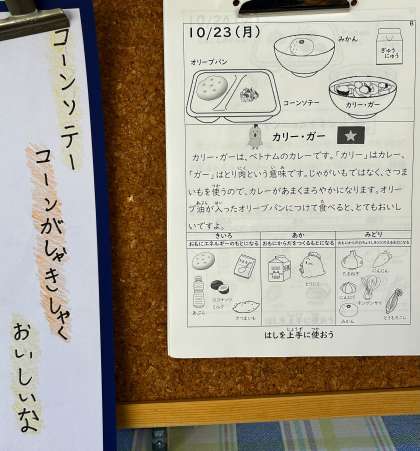 コーンソテー
コーンがしゃきしゃく
おいしいな
6
10/23(月)
みかん
ぎゅうにゅう
オリーブパン
コーンソテー
カリー・ガー
カリー・ガー
カリー・ガーは、ベトナムのカレーです。「カリー」はカレー、
「ガー」はとり肉という意味です。じゃがいもではなく、さつま
いもを使うので、カレーがあまくまろやかになります。オリー
ブ油が入ったオリーブパンにつけて食べると、とてもおいし
いですよ。
きいろ
おもにエネルギーのもとになる
あか
おもにからだをつくるもとになる
みどり
あぶら
ココナッツミルク
さつまいも
とりにく
たまねぎ
にんじん
にんにく
みかん
とうもろこし
はしを上手に使おう